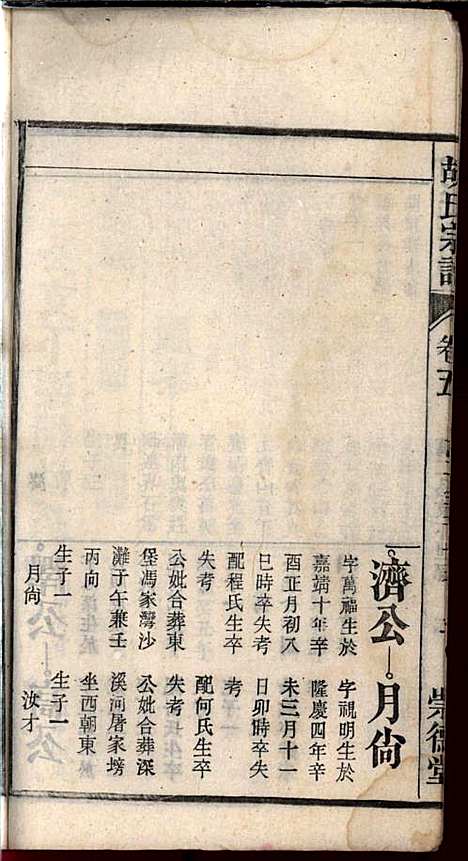 胡氏宗譜
卷五
崇德堂
濟公
月尙
字萬福生於
嘉靖十年辛
酉正月初八
巳時卒失考
配程氏生卒
失考
公妣合葬東
堡馮家灣沙
灘子午兼壬
丙向
生子一
月尙
字視明生於
隆慶四年辛
未三月十一
日卯時卒失
考
配何氏生卒
失考
公妣合葬深
溪河屠家塝
坐西朝東
生子一
汝才